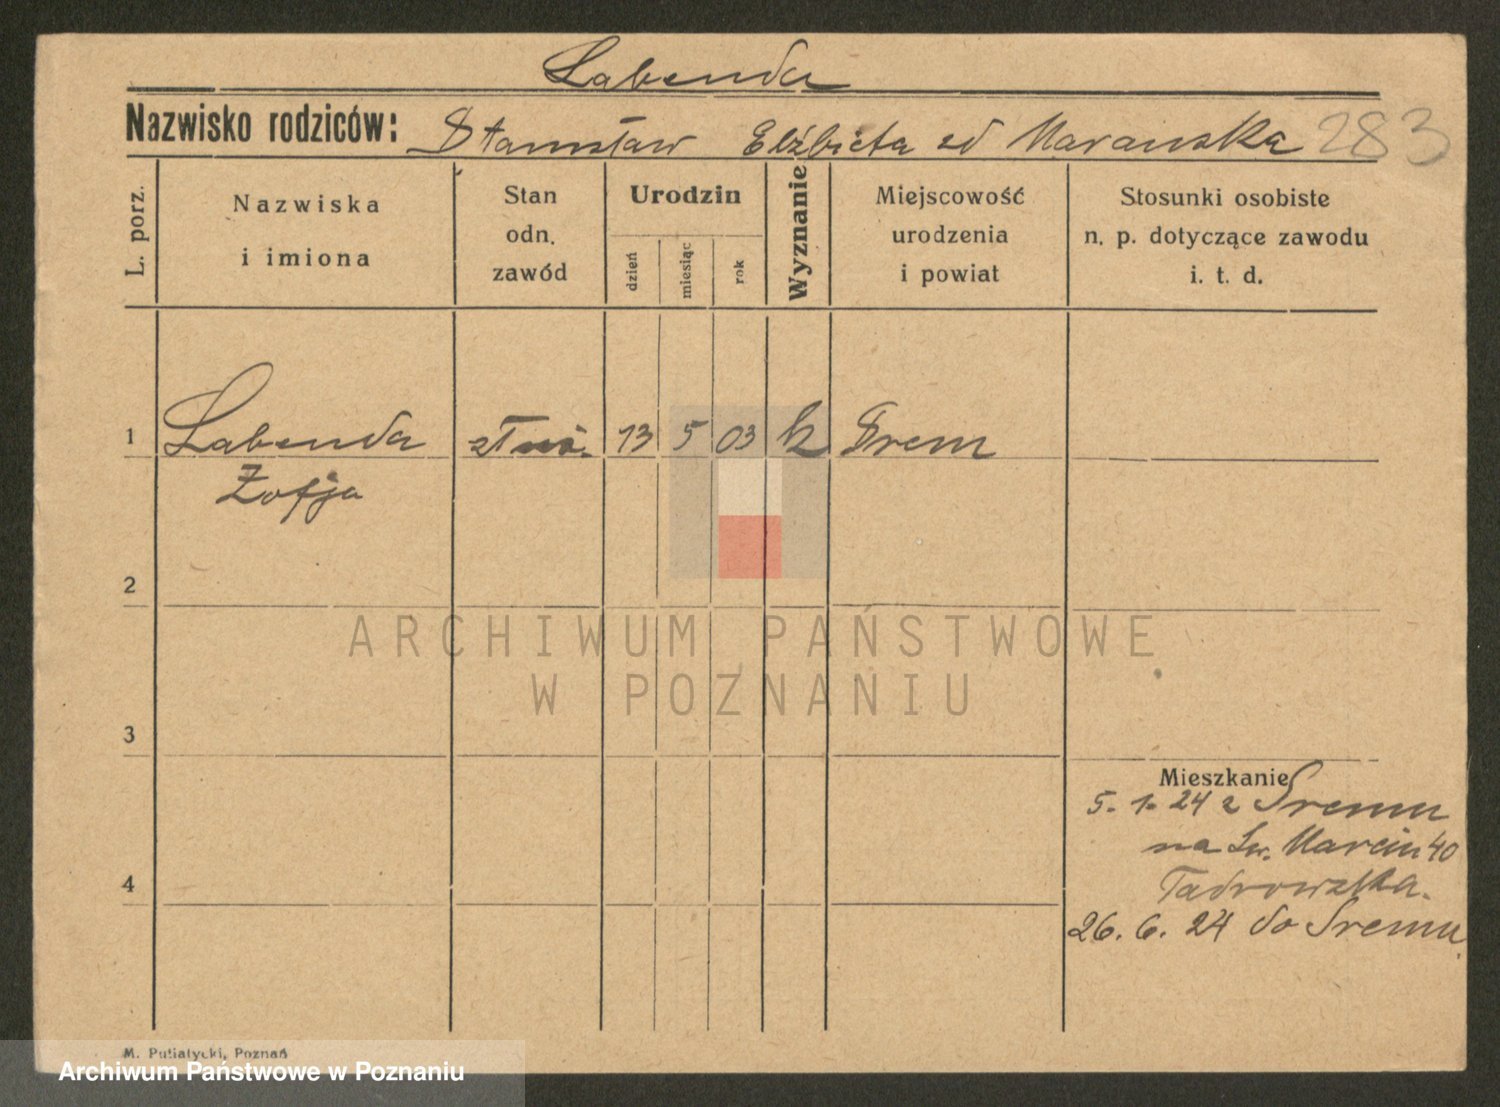 Labenda
Nazwisko rodziców: Stanisław Elżbieta zd Marańska 283
L. porz.
Nazwiska
i imiona
Stan
odn.
zawód
Urodzin
dzień
miesiąc
rok
Wyznanie
Miejscowość
urodzenia
i powiat
Stosunki osobiste
n. p. dotyczące zawodu
i. t. d.
1 Labenda 13 5 03 k Śrem
Zofja
2
ARCHIWUM PAŃSTWOWE
W POZNANIU
3
Mieszkanie
5. 1. 24 z Śremu
na Św. Marcin 40
4
26. 6. 24 do Śremu
M. Putiatycki, Poznań
Archiwum Państwowe w Poznaniu